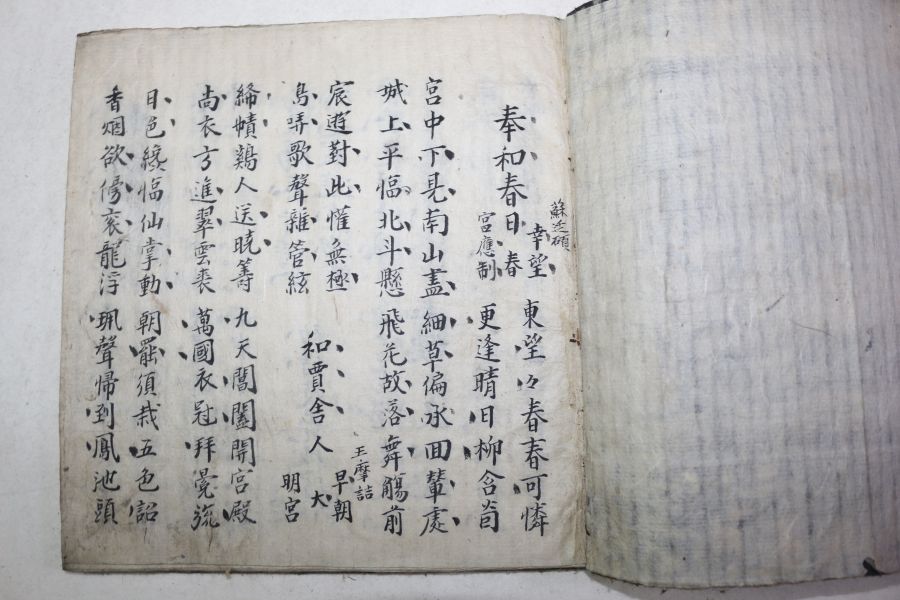 奉和春日
幸望春
宮應制
蘇廷碩
東望々春春可憐
更逢晴日柳含
宮中下見南山盡
城上平臨北斗懸
細草偏承回輦處
飛花故落舞觴前
宸遊對此懽無極
鳥哢歌聲雜管絃
和賈舎人
早朝大
明宮
王摩詰
絳幘鷄人送曉籌
尚衣方進翠雲裘
九天閶闔開宮殿
萬國衣冠拜冕旒
日色纔臨仙掌動
香烟欲傍袞龍浮
朝罷須裁五色詔
珮聲帰到鳳池頭